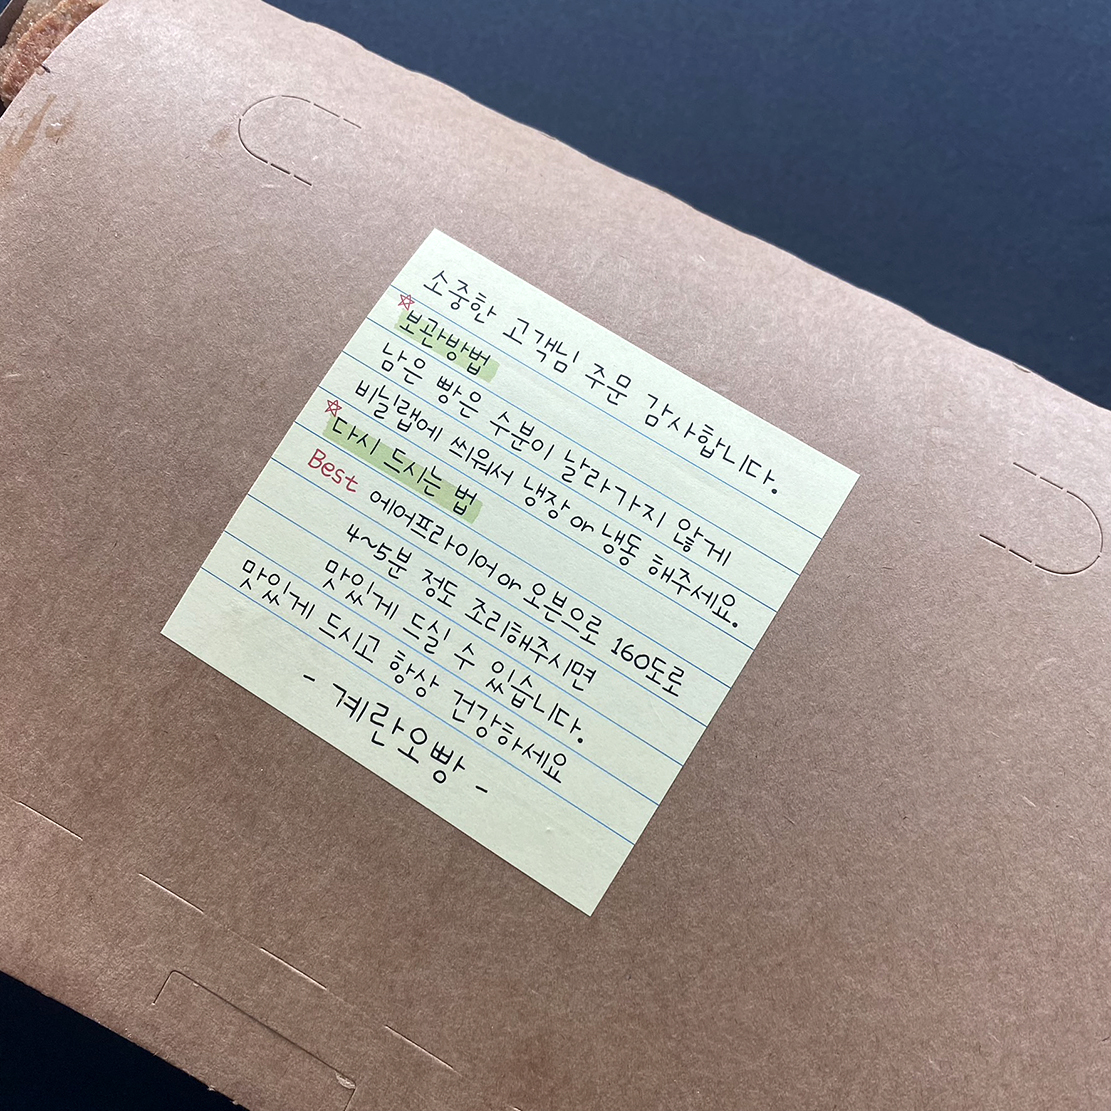 소중한 고객님 주문 감사합니다.
☆보관방법
남은 빵은 수분이 날라가지 않게
비닐랩에 씌워서 냉장 or 냉동 해주세요.
☆다시 드시는 법
Best 에어프라이어 or 오븐으로 160도로
4~5분 정도 조리해주시면
맛있게 드실 수 있습니다.
맛있게 드시고 항상 건강하세요
- 계란오빵 -